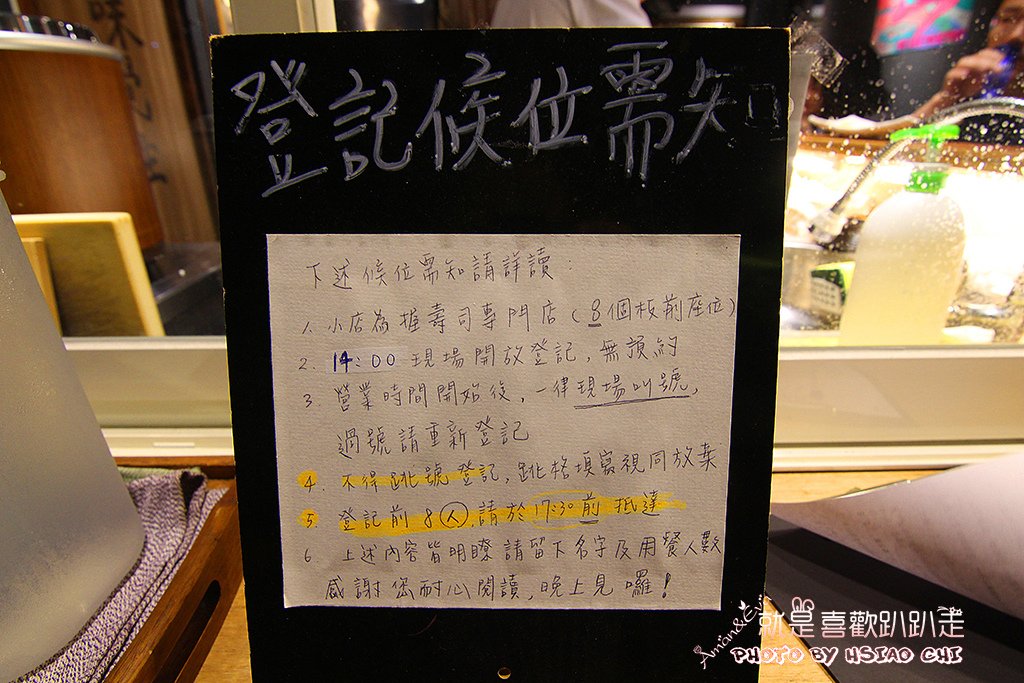 登記候位需知
下述候位需知請詳讀：
1. 小店為握壽司專門店（8個板前座位）
2. 14:00 現場開放登記，無預約
3. 營業時間開始後，一律現場叫號，
過號請重新登記
4. 不得跳號登記，跳格填寫視同放棄
5 登記前8人，請於17:30前抵達
6. 上述內容皆明瞭請留下名字及用餐人數
感謝您耐心閱讀，晚上見囉！
就是喜歡趴趴走
PHOTO BY HSIAO CHI